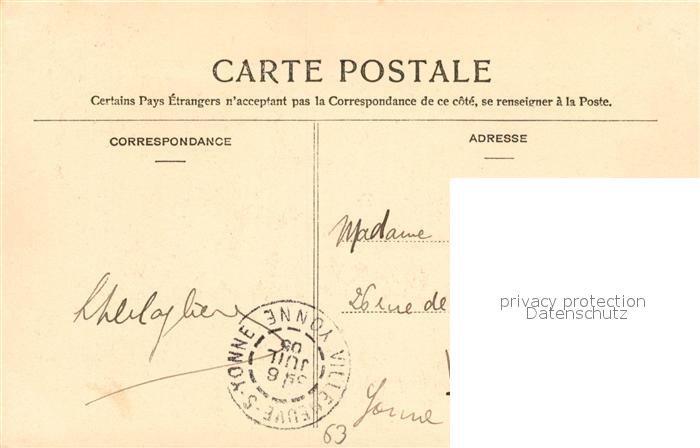 CARTE POSTALE
Certains Pays Étrangers n'acceptant pas la Correspondance de ce côté, se renseigner à la Poste.
CORRESPONDANCE
ADRESSE
Madame
privacy protection
Datenschutz
26 rue de
VILLENEUVE-S-YONNE YONNE
JUIL
05
Yonne
63